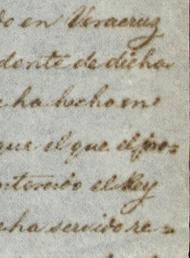 do en Veracruz
dente de dicha
e ha hecho en
que el que el pro=
ntenido el Rey
e ha servido re=